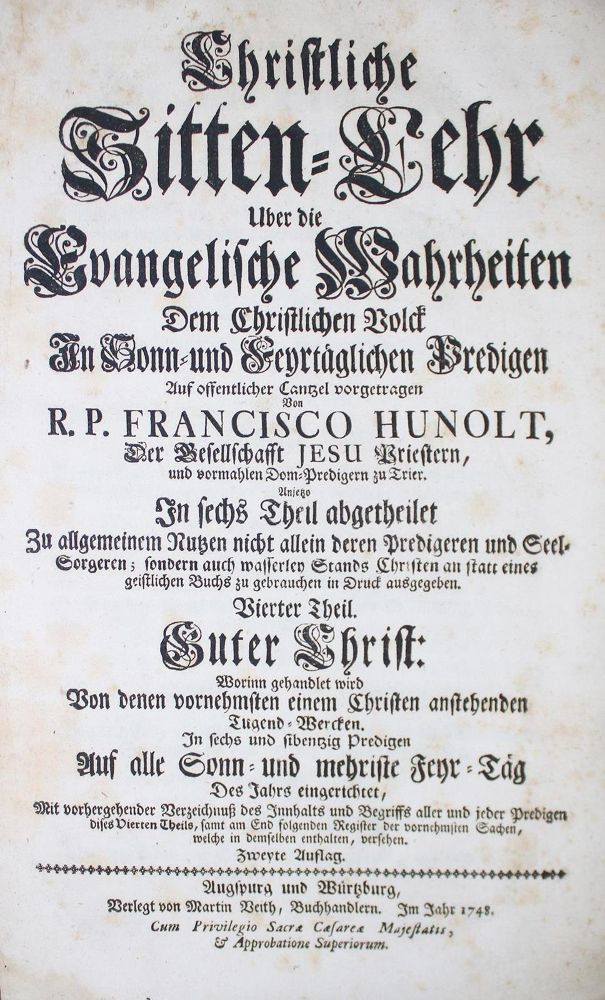 Christliche
Sitten-Lehr
Uber die
Evangelische Wahrheiten
Dem Christlichen Volck
In Sonn- und Feyrtäglichen Predigen
Auf offentlicher Cantzel vorgetragen
Von
R. P. FRANCISCO HUNOLT,
Der Gesellschafft JESU Priestern,
und vormahlen Dom-Predigern zu Trier.
Anjetzo
In sechs Theil abgetheilet
Zu allgemeinem Nutzen nicht allein deren Predigeren und Seel-
Sorgeren; sondern auch wasserley Stands Christen an statt eines
geistlichen Buchs zu gebrauchen in Druck ausgegeben.
Vierter Theil.
Guter Christ:
Worinn gehandlet wird
Von denen vornehmsten einem Christen anstehenden
Tugend-Wercken.
In sechs und sibentzig Predigen
Auf alle Sonn- und mehriste Feyr-Täg
Des Jahrs eingerichtet,
Mit vorhergehender Verzeichnuß des Innhalts und Begriffs aller und jeder Predigen
dises Vierten Theils, samt am End folgenden Register der vornehmsten Sachen,
welche in demselben enthalten, versehen.
Zweyte Auflag.
Augspurg und Würtzburg,
Verlegt von Martin Veith, Buchhandlern. Im Jahr 1748.
Cum Privilegio Sacræ Cæsareæ Majestatis,
& Approbatione Superiorum.